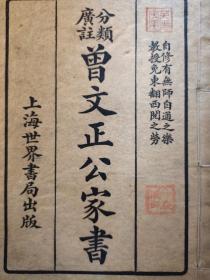 自修有無師自通之樂
教授免東翻西閱之勞
分類
廣註
曾文正公家書
上海世界書局出版